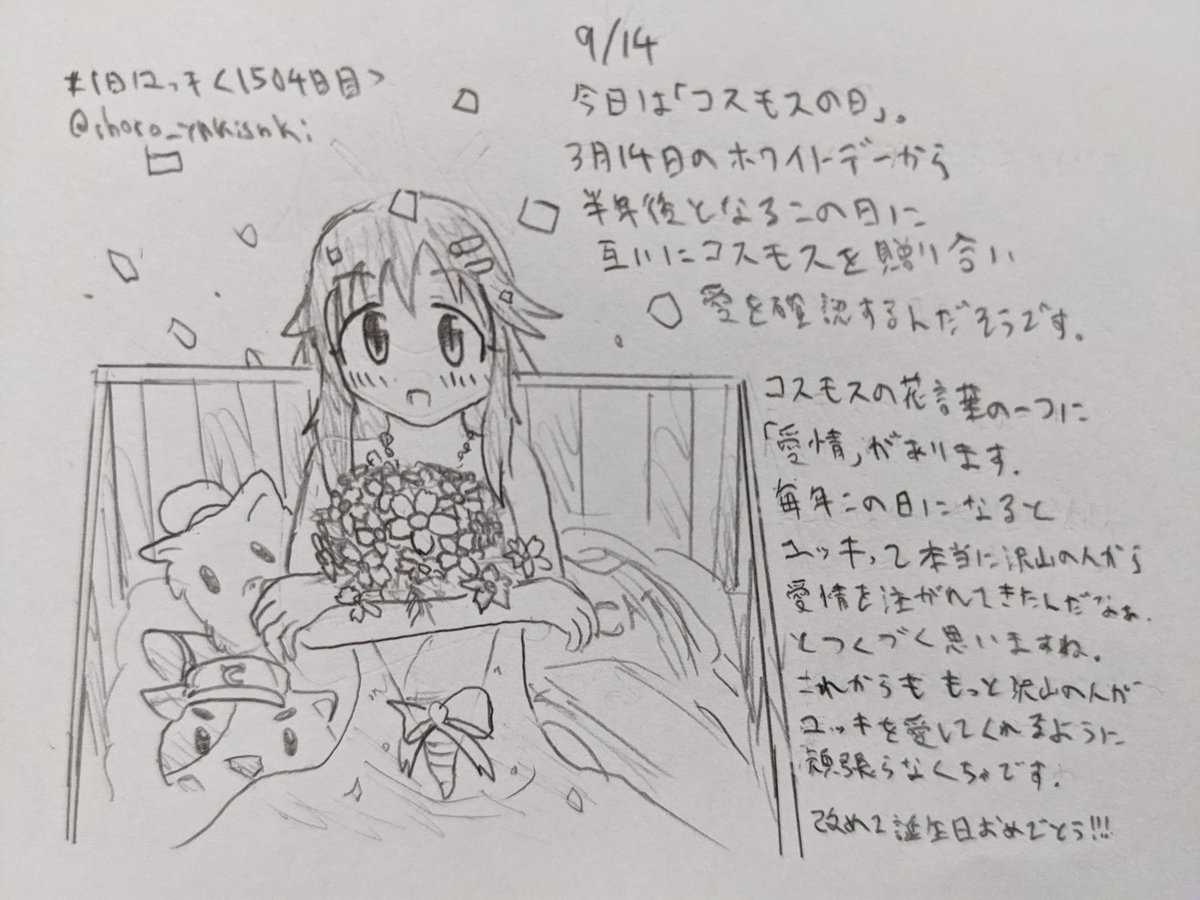 #1日1ユッキ<1504日目>
@shoro_yukisuki
9/14
今日は「コスモスの日」。
3月14日のホワイトデーから
半年後となるこの日に
互いにコスモスを贈り合い
愛を確認するんだそうです。
コスモスの花言葉の一つに
「愛情」があります。
毎年この日になると
ユッキって本当に沢山の人から
愛情を注がれてきたんだなぁ、
とつくづく思いますね。
これからも もっと沢山の人が
ユッキを愛してくれるように
頑張らなくちゃです。
改めて誕生日おめでとう!!!
C
CAT